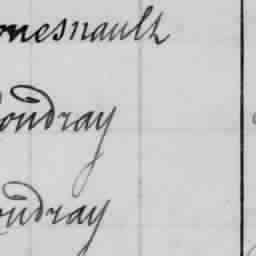 onesnault
Coudray
Coudray